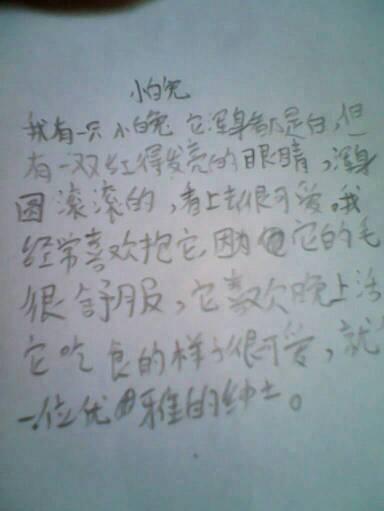 小白兔
我有一只小白兔 它浑身都是白,但
有一双红得发亮的眼睛,浑身
圆滚滚的,看上去很可爱,我
经常喜欢抱它,因为它的毛
很舒服,它喜欢晚上活
它吃食的样子很可爱,就
一位优雅的绅士。